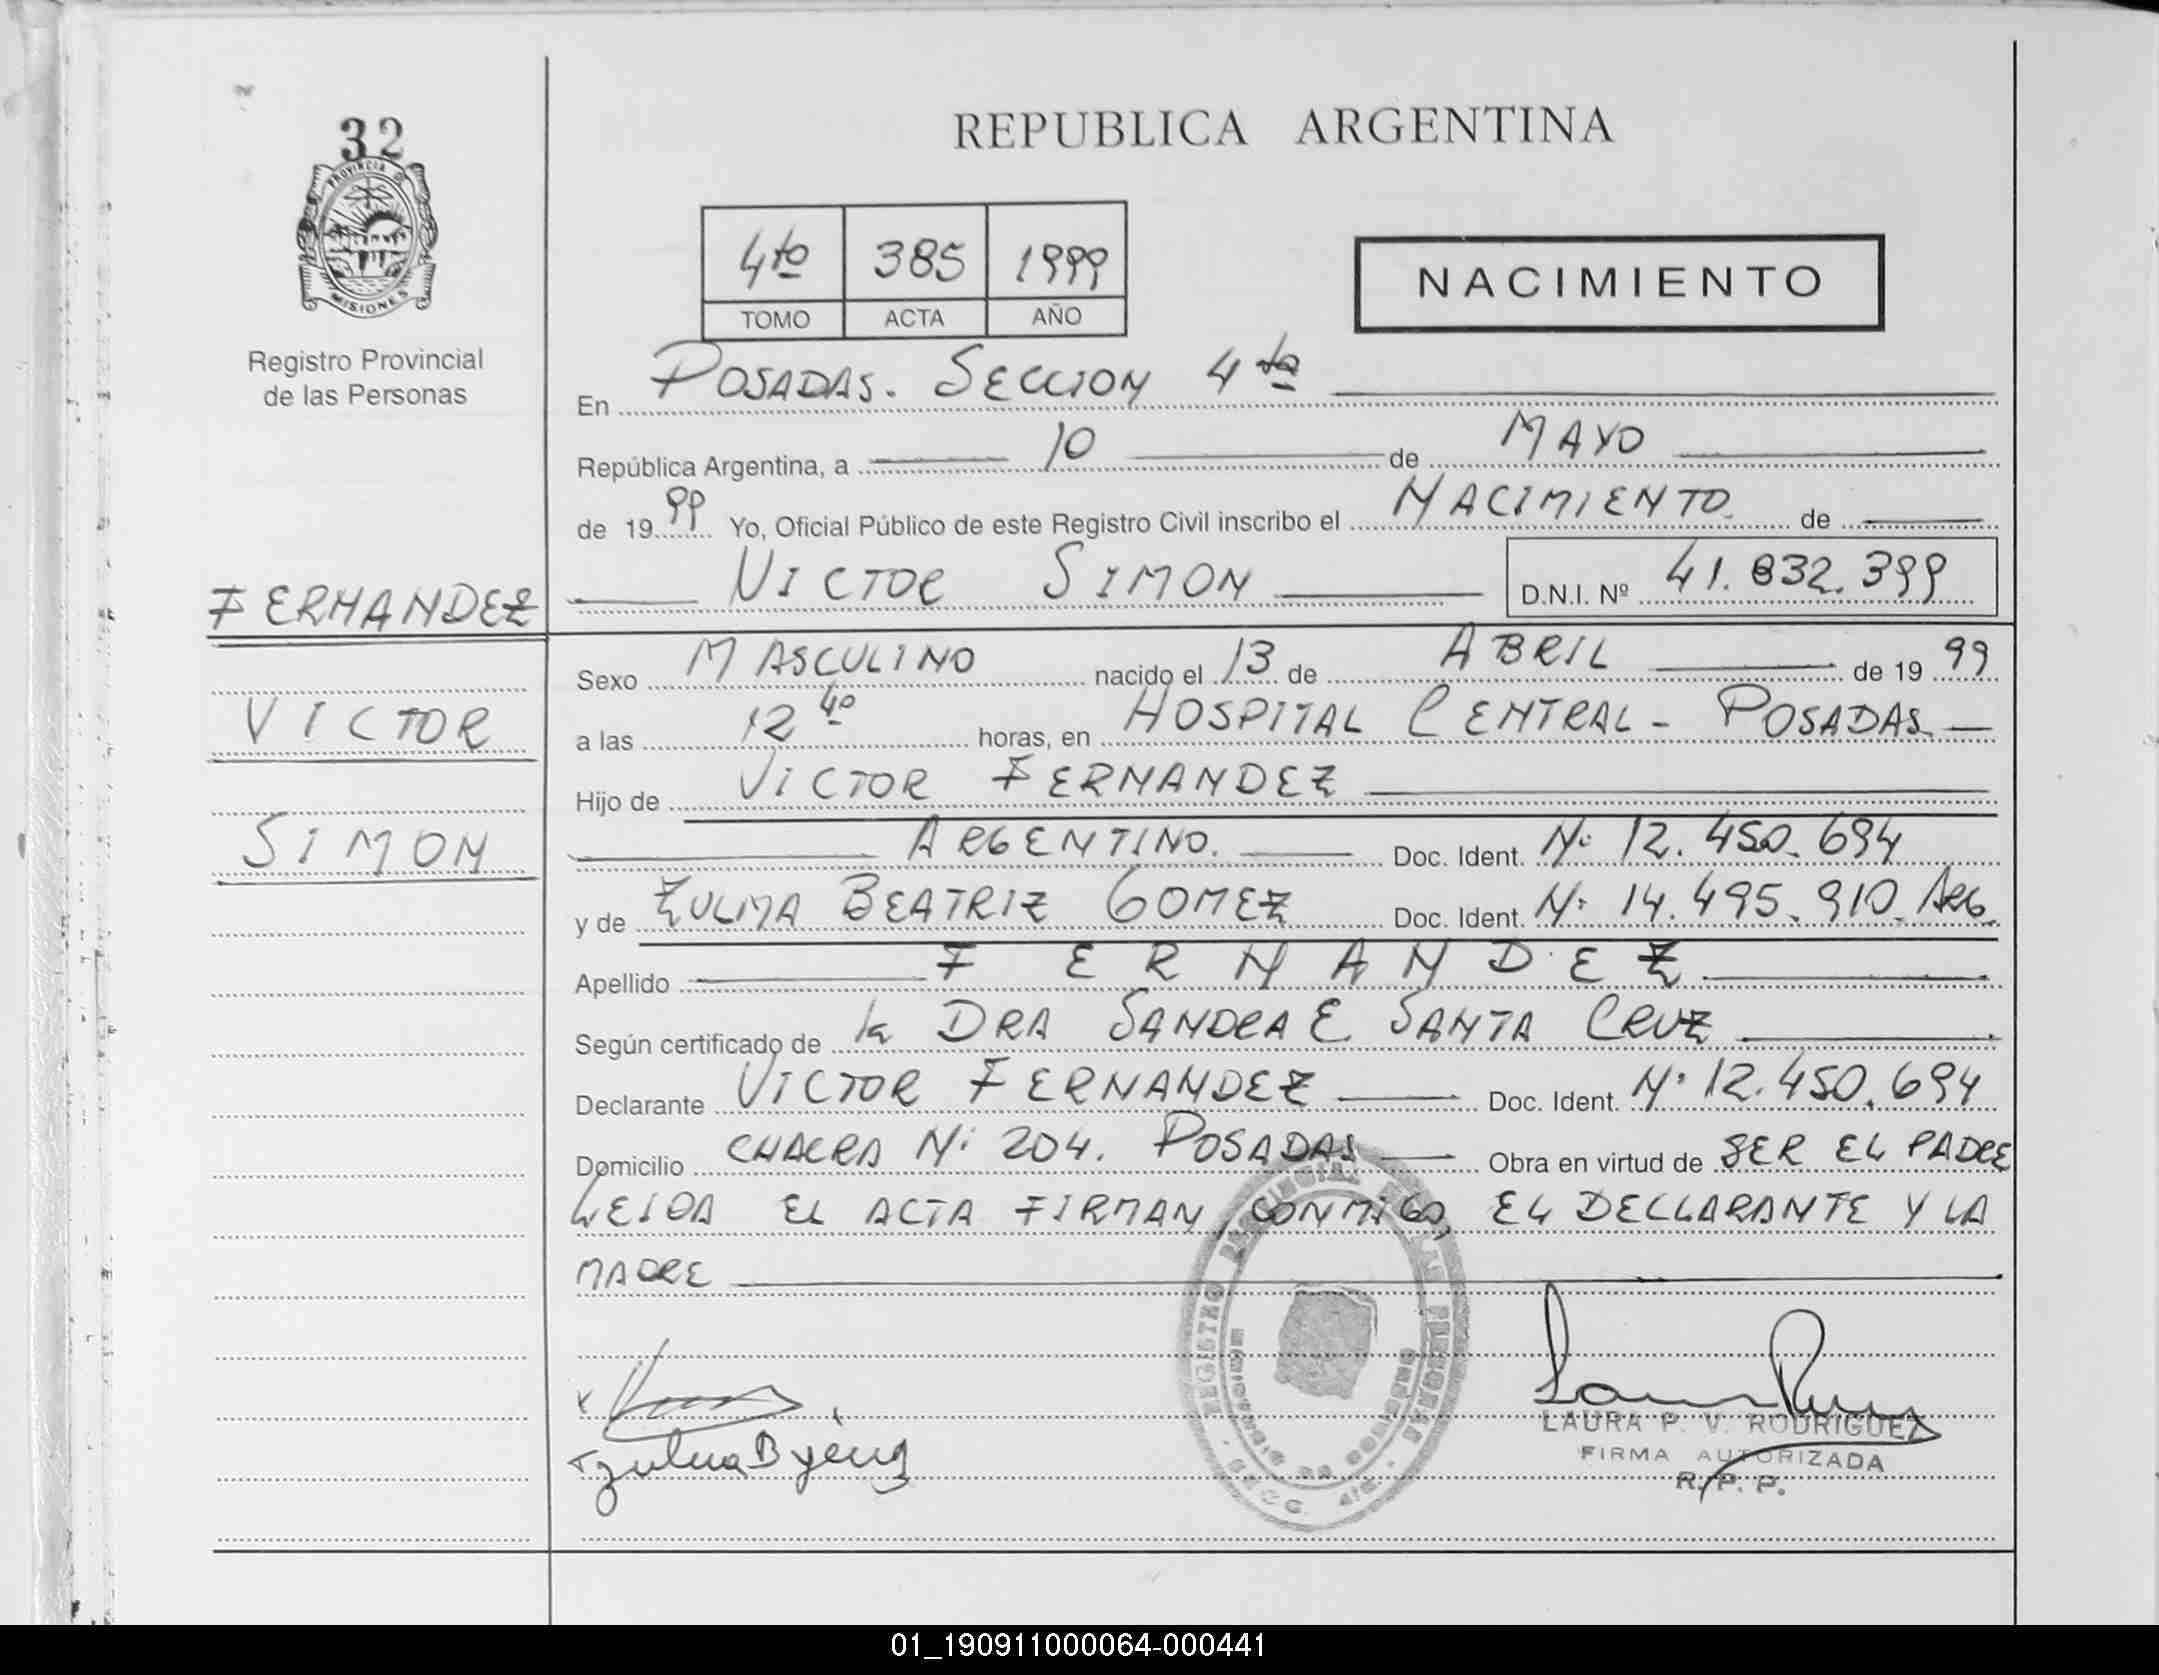 32
PROVINCIA DE
MISIONES
Registro Provincial
de las Personas
FERNANDEZ
VICTOR
SIMON
REPUBLICA ARGENTINA
4to 385 1999
TOMO ACTA AÑO
NACIMIENTO
En POSADAS. SECCION 4ta
República Argentina, a 10 de MAYO
de 1999 Yo, Oficial Público de este Registro Civil inscribo el NACIMIENTO de
VICTOR SIMON D.N.I. Nº 41.832.399
Sexo MASCULINO nacido el 13 de ABRIL de 1999
a las 12 40 horas, en HOSPITAL CENTRAL - POSADAS
Hijo de VICTOR FERNANDEZ
ARGENTINO. Doc. Ident. Nº 12.450.694
y de ZULMA BEATRIZ GOMEZ Doc. Ident. Nº 14.495.910 ARG.
Apellido FERNANDEZ
Según certificado de la DRA SANDRA E SANTA CRUZ
Declarante VICTOR FERNANDEZ Doc. Ident. Nº 12.450.694
Domicilio CHACRA Nº 204. POSADAS Obra en virtud de SER EL PADRE
LEIDA EL ACTA FIRMAN CONMIGO, EL DECLARANTE Y LA
MADRE
REGISTRO PROVINCIAL DE LAS PERSONAS
MISIONES
LAURA P. V. RODRIGUEZ
FIRMA AUTORIZADA
R. P. P.
01_190911000064-000441